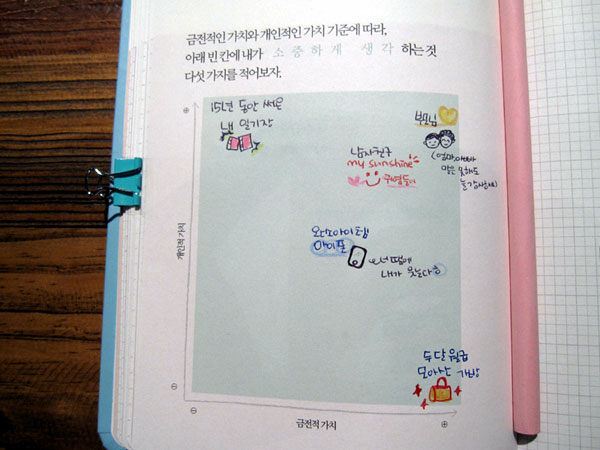 금전적인 가치와 개인적인 가치 기준에 따라,
아래 빈 칸에 내가 소중하게 생각 하는 것
다섯 가지를 적어보자.
15년 동안 써온
내 일기장
부모님
(엄마, 아빠
말은 못해도
늘 감사해)
남자친구
my sunshine
완소아이템
아이폰
너 땜에
내가 웃는다
두 달 월급
모아 산 가방
개인적 가치
금전적 가치